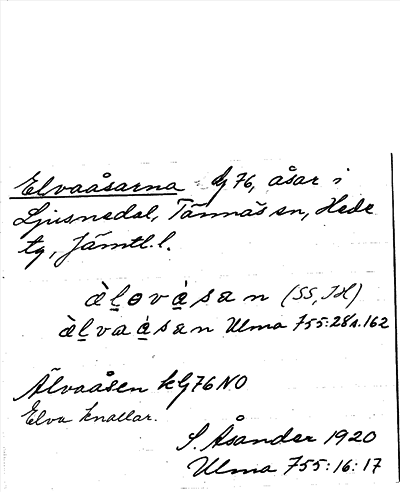 Elvaåsarna G 76, åsar i
Ljusnedal, Tännäs sn, Hede
tg, Jämtl. l.
àl̠ɵvá̠san (SS, JH)
àl̠vaá̠san Ulma 755:28 s. 162
Älvaåsen kG76NO
Elva knallar.
S. Åsander 1920
Ulma 755:16:17